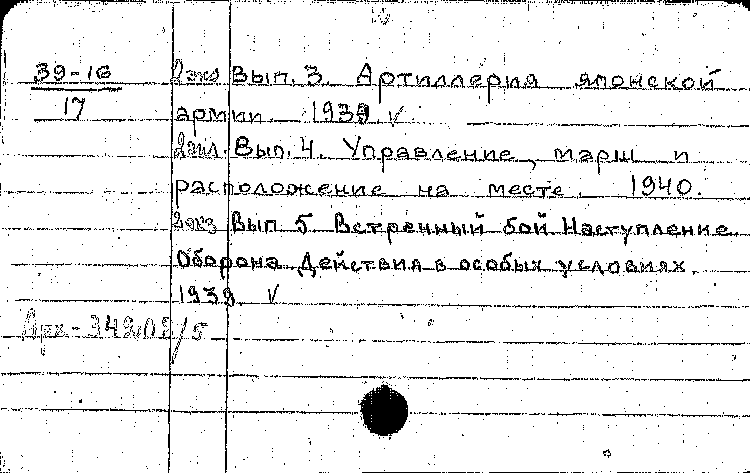 39-16
17
2экз Вып. 3. Артиллерия японской
армии. 1939. V
2экз. Вып. 4. Управление, марш и
расположение на месте. 1940.
2экз Вып. 5 Встречный бой Наступление.
Оборона. Действия в особых условиях.
1939. V
Арх-